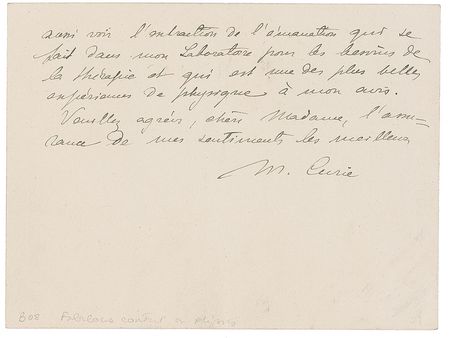 aussi voir l'extraction de l'émanation qui se
fait dans mon Laboratoire pour les besoins de
la thérapie et qui est une des plus belles
expériences de physique à mon avis.
Veuillez agréer, chère Madame, l'assu-
rance de mes sentiments les meilleurs
M. Curie
B08 Fabulous content